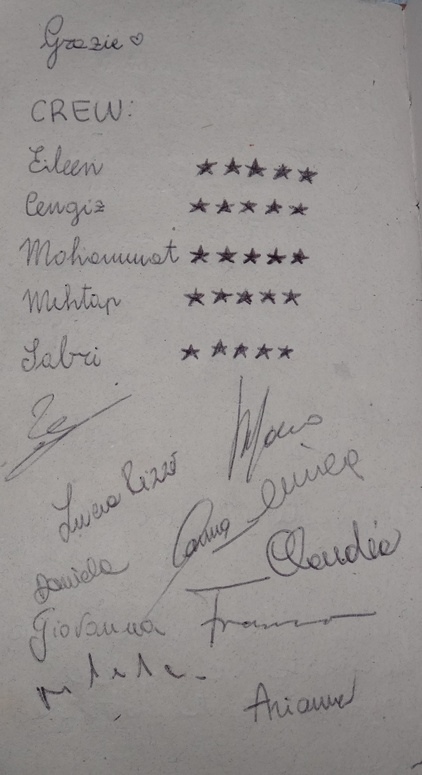 Grazie ♡
CREW:
Eileen ★★★★★
Cengiz ★★★★★
Mohammat ★★★★★
Mehtap ★★★★★
Sabri ★★★★★
Lucia Rizzo
Daniela
Claudia
Giovanna
Franco
Arianna